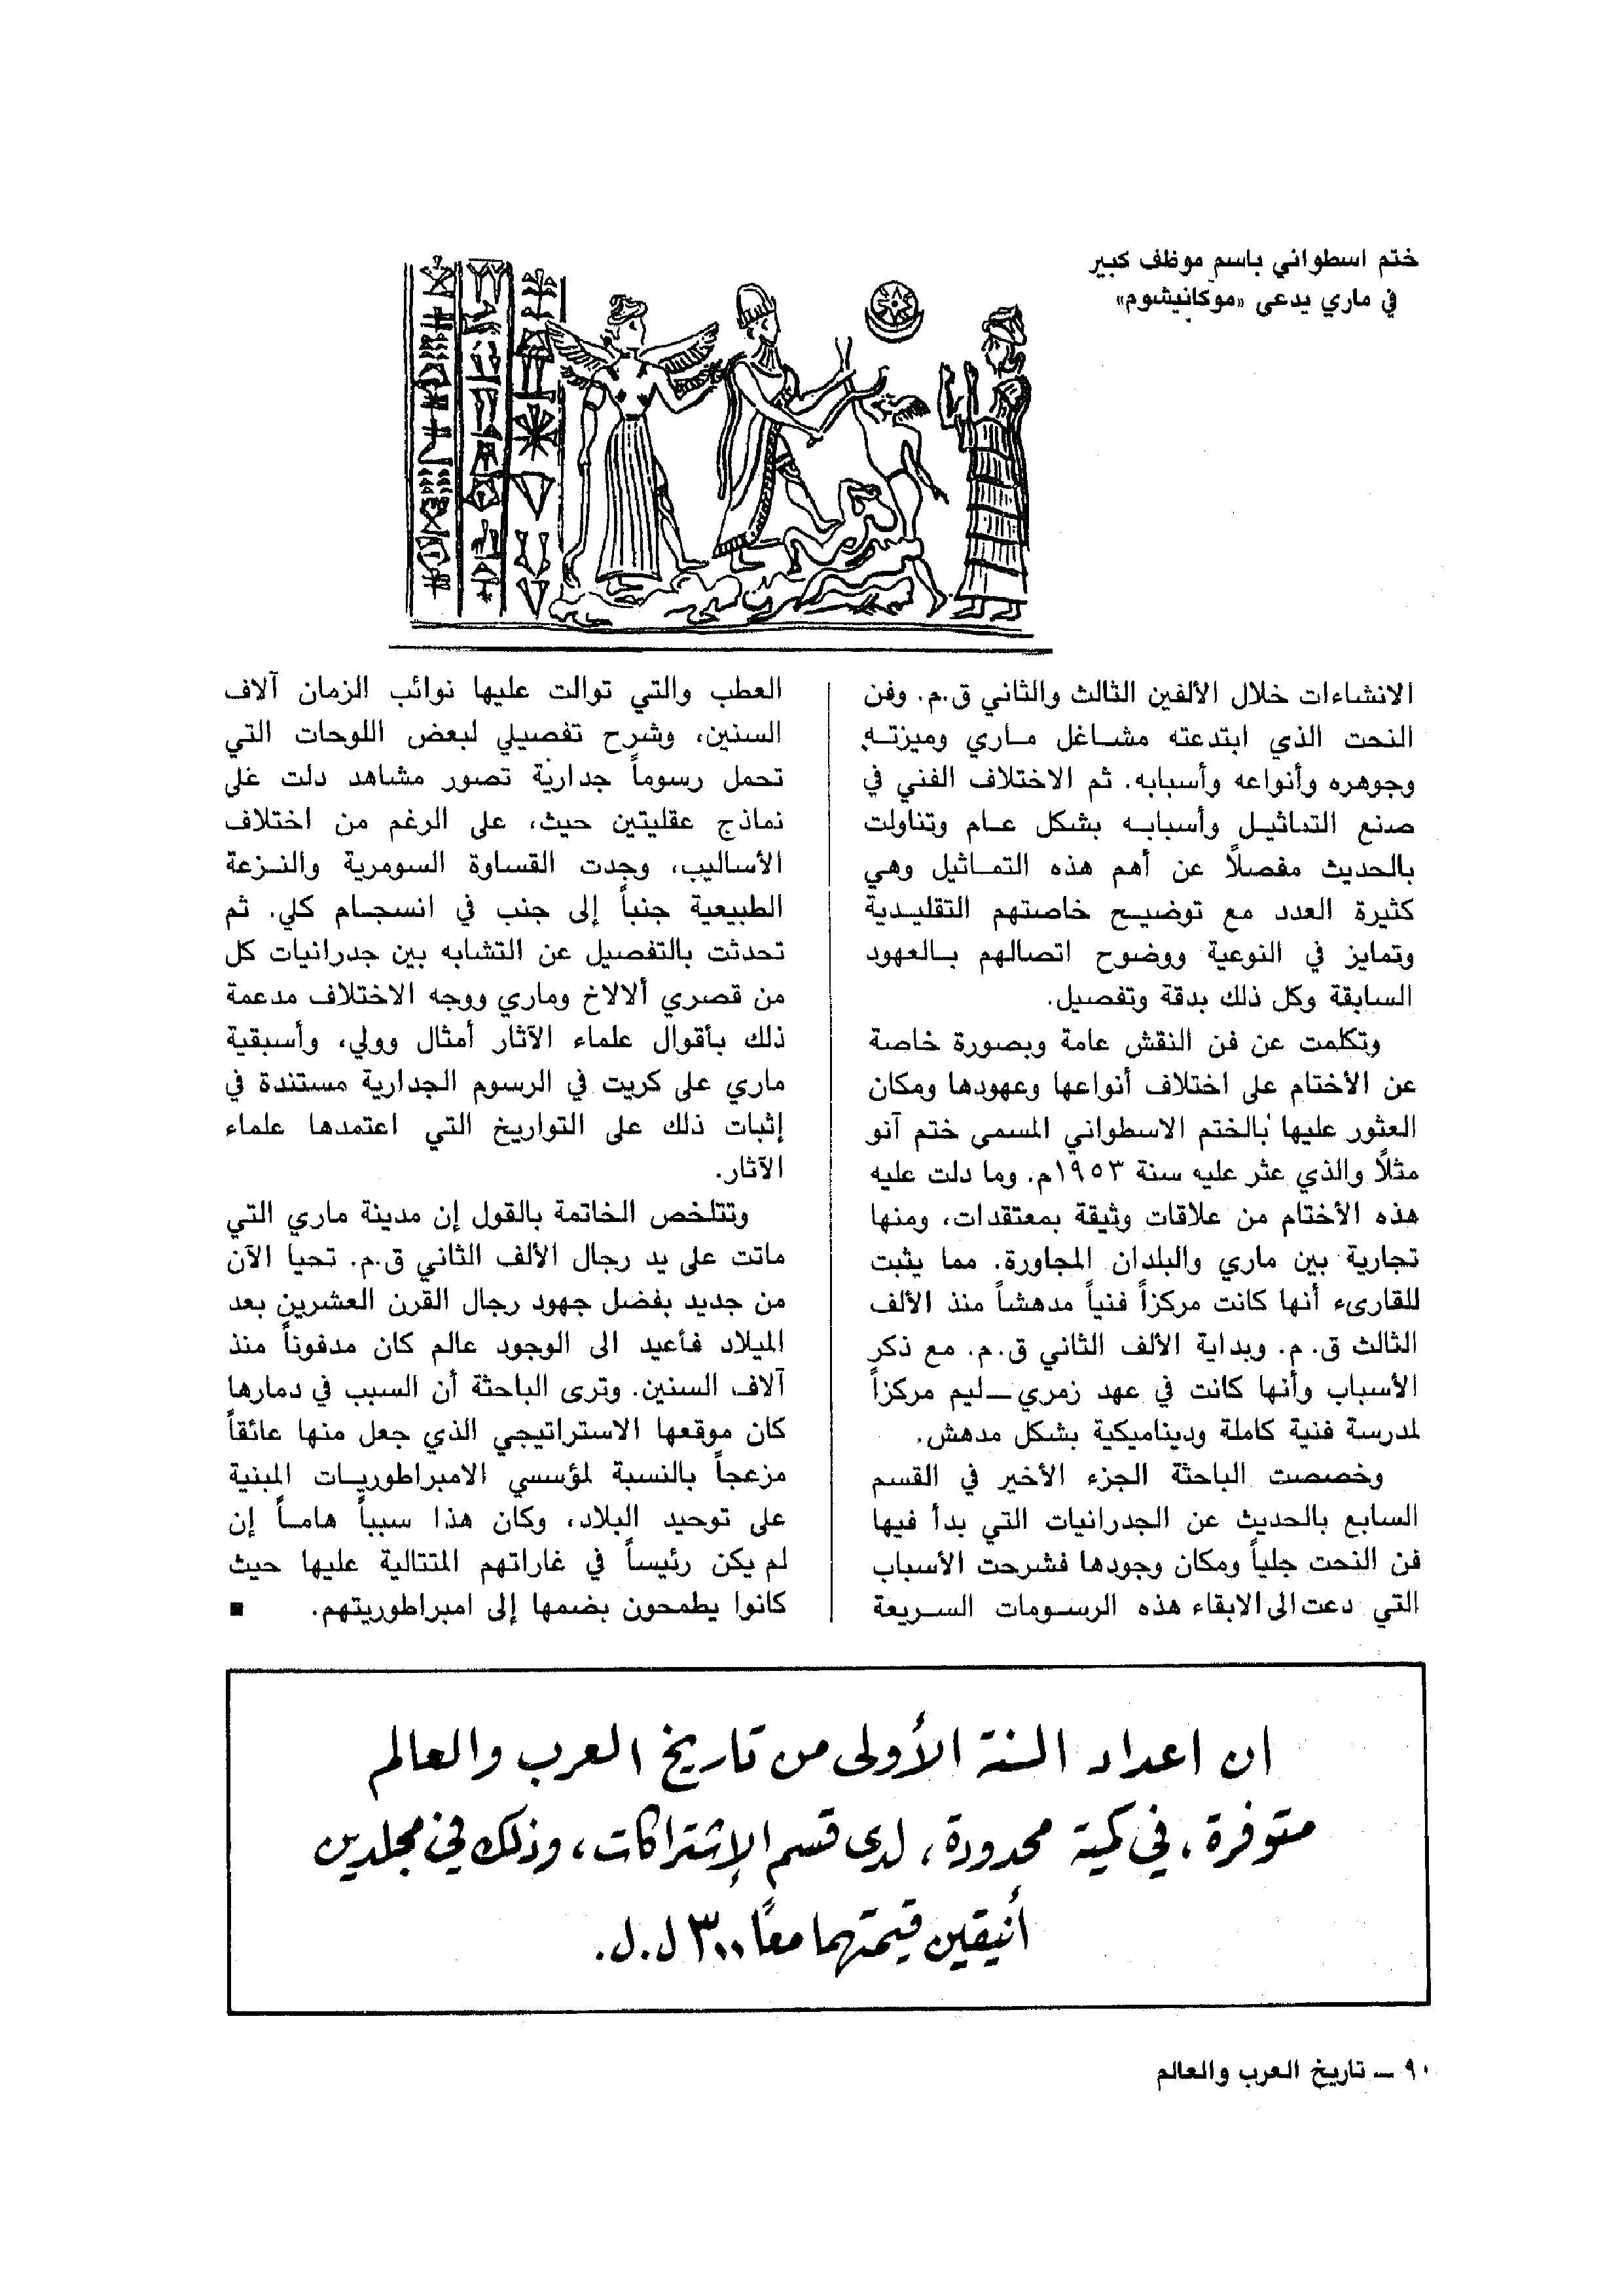 ختم اسطواني باسم موظف كبير
في ماري يدعى «موكانيشوم»
الانشاءات خلال الألفين الثالث والثاني ق.م. وفن
النحت الذي ابتدعته مشاغل ماري وميزته
وجوهره وأنواعه وأسبابه. ثم الاختلاف الفني في
صنع التماثيل وأسبابه بشكل عام وتناولت
بالحديث مفصلاً عن أهم هذه التماثيل وهي
كثيرة العدد مع توضيح خاصتهم التقليدية
وتمايز في النوعية ووضوح اتصالهم بالعهود
السابقة وكل ذلك بدقة وتفصيل.
وتكلمت عن فن النقش عامة وبصورة خاصة
عن الأختام على اختلاف أنواعها وعهودها ومكان
العثور عليها بالختم الاسطواني المسمى ختم آنو
مثلاً والذي عثر عليه سنة ١٩٥٣م. وما دلت عليه
هذه الأختام من علاقات وثيقة بمعتقدات، ومنها
تجارية بين ماري والبلدان المجاورة. مما يثبت
للقارىء أنها كانت مركزاً فنياً مدهشاً منذ الألف
الثالث ق. م. وبداية الألف الثاني ق.م. مع ذكر
الأسباب وأنها كانت في عهد زمري ــ ليم مركزاً
لمدرسة فنية كاملة وديناميكية بشكل مدهش.
وخصصت الباحثة الجزء الأخير في القسم
السابع بالحديث عن الجدرانيات التي بدأ فيها
فن النحت جلياً ومكان وجودها فشرحت الأسباب
التي دعت الى الابقاء هذه الرسومات السريعة
العطب والتي توالت عليها نوائب الزمان آلاف
السنين، وشرح تفصيلي لبعض اللوحات التي
تحمل رسوماً جدارية تصور مشاهد دلت على
نماذج عقليتين حيث، على الرغم من اختلاف
الأساليب، وجدت القساوة السومرية والنزعة
الطبيعية جنباً إلى جنب في انسجام كلي. ثم
تحدثت بالتفصيل عن التشابه بين جدرانيات كل
من قصري ألالاخ وماري ووجه الاختلاف مدعمة
ذلك بأقوال علماء الآثار أمثال وولي، وأسبقية
ماري على كريت في الرسوم الجدارية مستندة في
إثبات ذلك على التواريخ التي اعتمدها علماء
الآثار.
وتتلخص الخاتمة بالقول إن مدينة ماري التي
ماتت على يد رجال الألف الثاني ق.م. تحيا الآن
من جديد بفضل جهود رجال القرن العشرين بعد
الميلاد فأعيد الى الوجود عالم كان مدفوناً منذ
آلاف السنين. وترى الباحثة أن السبب في دمارها
كان موقعها الاستراتيجي الذي جعل منها عائقاً
مزعجاً بالنسبة لمؤسسي الامبراطوريات المبنية
على توحيد البلاد، وكان هذا سبباً هاماً إن
لم يكن رئيساً في غاراتهم المتتالية عليها حيث
كانوا يطمحون بضمها إلى امبراطوريتهم. ■
ان اعداد السنة الأولى من تاريخ العرب والعالم
متوفرة، في كمية محدودة، لدى قسم الإشتراكات، وذلك في مجلدين
أنيقين قيمتهما معًا ٣٠٠ ل.ل.
٩٠ ــ تاريخ العرب والعالم